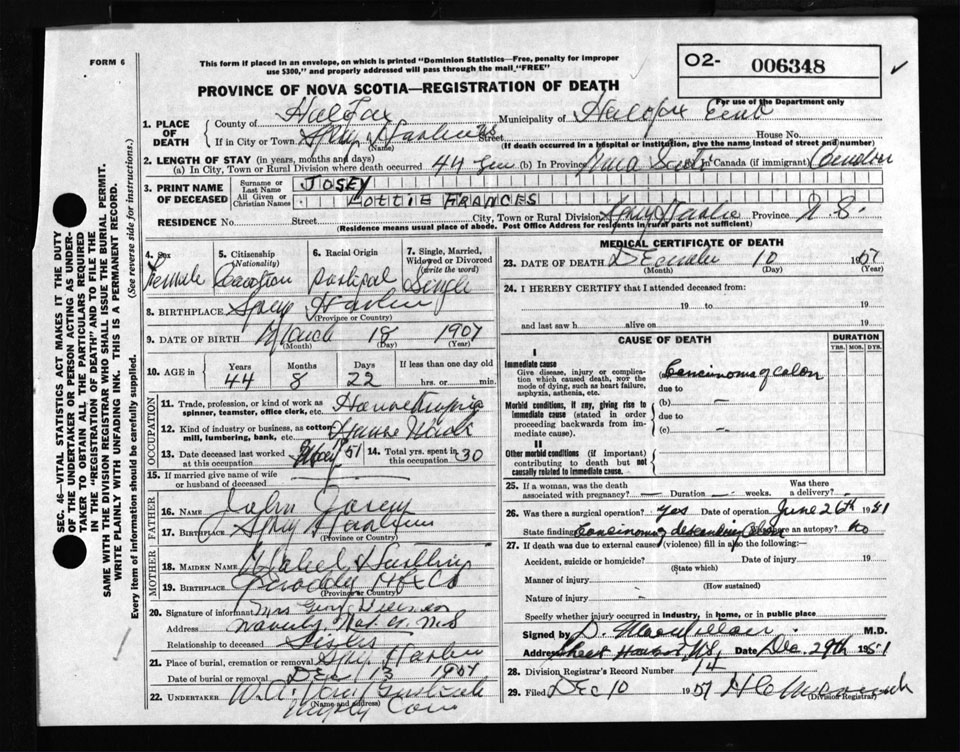 FORM 6
This form if placed in an envelope, on which is printed "Dominion Statistics—Free, penalty for improper
use $300," and properly addressed will pass through the mail "FREE"
O2- 006348
For use of the Department only
PROVINCE OF NOVA SCOTIA—REGISTRATION OF DEATH
1. PLACE OF DEATH
County of Halifax Municipality of Halifax
If in City or Town Street House No.
(Name) (If death occurred in a hospital or institution, give the name instead of street and number)
2. LENGTH OF STAY (in years, months and days)
(a) In City, Town or Rural Division where death occurred 44 (b) In Province Nova Scotia In Canada (if immigrant)
3. PRINT NAME OF DECEASED
Surname or Last Name JOSEY
All Given or Christian Names LOTTIE FRANCES
RESIDENCE No. Street City, Town or Rural Division Province N.S.
(Residence means usual place of abode. Post Office Address for residents in rural parts not sufficient)
4. Sex Female
5. Citizenship (Nationality)
6. Racial Origin
7. Single, Married, Widowed or Divorced (write the word) Single
8. BIRTHPLACE Spry Harbour
(Province or Country)
9. DATE OF BIRTH March 18 1907
(Month) (Day) (Year)
10. AGE in Years 44 Months 8 Days 22 If less than one day old hrs. or min.
OCCUPATION
11. Trade, profession, or kind of work as spinner, teamster, office clerk, etc. Housekeeping
12. Kind of industry or business, as cotton mill, lumbering, bank, etc. House Work
13. Date deceased last worked at this occupation 51
14. Total yrs. spent in this occupation 30
15. If married give name of wife or husband of deceased
FATHER
16. NAME John Josey
17. BIRTHPLACE Spry Harbour
(Province or Country)
MOTHER
18. MAIDEN NAME
19. BIRTHPLACE Hfx Co
(Province or Country)
20. Signature of informant Mrs
Address Waverly N.S
Relationship to deceased Sister
21. Place of burial, cremation or removal Spry Harbour
Date of burial or removal DEC 13
22. UNDERTAKER
(Name and address)
MEDICAL CERTIFICATE OF DEATH
23. DATE OF DEATH December 10 1951
(Month) (Day) (Year)
24. I HEREBY CERTIFY that I attended deceased from:
19 to 19
and last saw h alive on 19
CAUSE OF DEATH
DURATION
YRS. MOS. DYS.
I
Immediate cause
Give disease, injury or complication which caused death, not the mode of dying, such as heart failure, asphyxia, asthenia, etc.
(a) Carcinoma of colon
due to
Morbid conditions, if any, giving rise to immediate cause (stated in order proceeding backwards from immediate cause).
(b) —
due to
(c) —
II
Other morbid conditions (if important) contributing to death but not causally related to immediate cause.
25. If a woman, was the death associated with pregnancy? — Duration — weeks. Was there a delivery? -
26. Was there a surgical operation? yes Date of operation June 26th 1951
State findings Carcinoma descending Colon Was there an autopsy? no
27. If death was due to external causes (violence) fill in also the following:—
Accident, suicide or homicide? Date of injury 19
(State which)
Manner of injury
(How sustained)
Nature of injury
Specify whether injury occurred in industry, in home, or in public place
Signed by D. MacMillan M.D.
Address Sheet Harbour N.S. Date Dec. 29th 1951
28. Division Registrar's Record Number 14
29. Filed Dec 10 1951
(Division Registrar)
SEC. 46—VITAL STATISTICS ACT MAKES IT THE DUTY
OF THE UNDERTAKER OR PERSON ACTING AS UNDER-
TAKER TO OBTAIN ALL THE PARTICULARS REQUIRED
IN THE "REGISTRATION OF DEATH" AND TO FILE THE
SAME WITH THE DIVISION REGISTRAR WHO SHALL ISSUE THE BURIAL PERMIT.
WRITE PLAINLY WITH UNFADING INK. THIS IS A PERMANENT RECORD.
Every item of information should be carefully supplied. (See reverse side for instructions.)